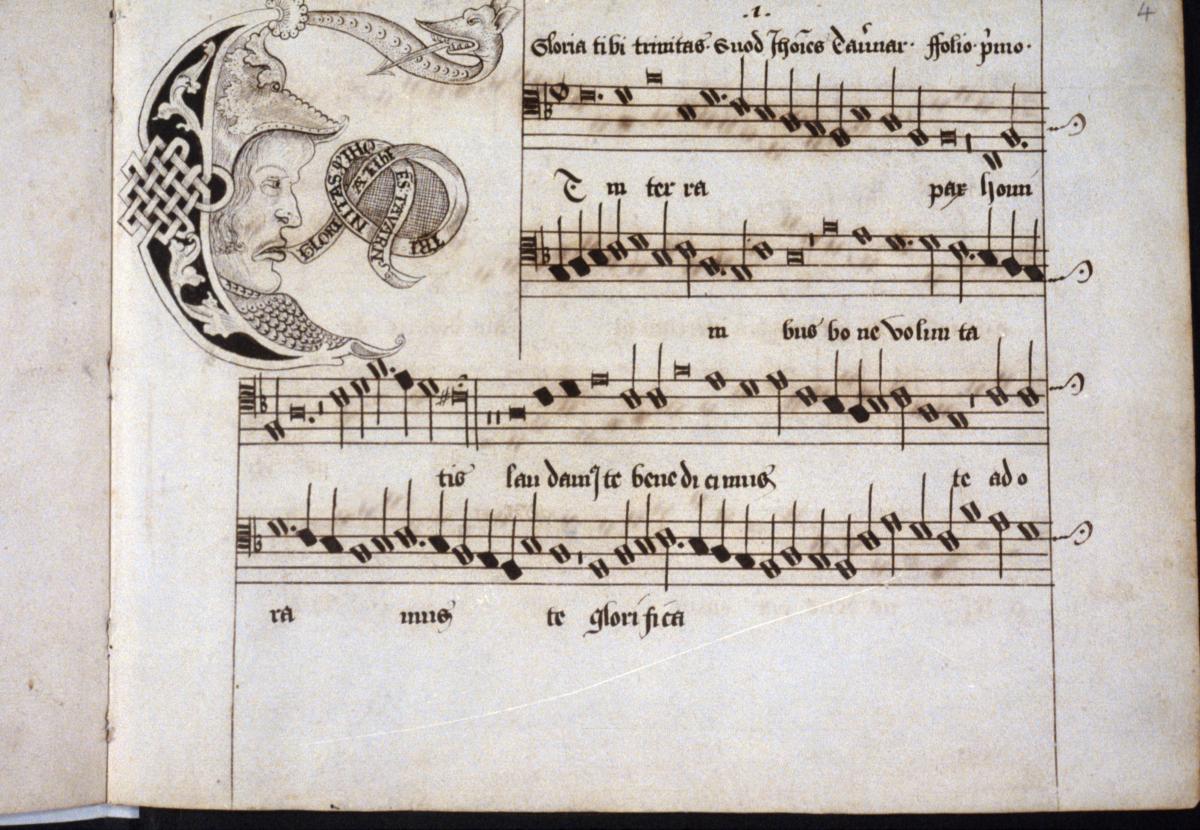 4
.1.
Gloria tibi trinitas. Quod Johēs Tav̄nar. ffolio p̄mo.
GLORIA TIBI TRINITAS
ES TAVARN
Et in ter ra pax homi
ni bus bo ne volun ta
tis lau dam⁹ te bene di cimus te ado
ra mus te glori fica